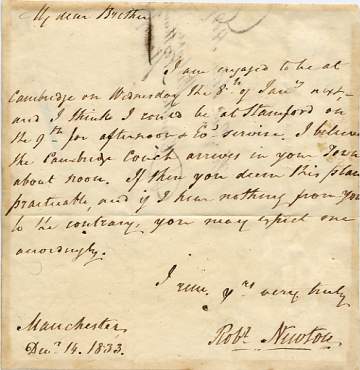 My dear Brother
I am engaged to be at
Cambridge on Wednesday the 8th of Jany next,
and I think I could be at Stamford on
the 9th for afternoon & Eve. service. I believe
the Cambridge Coach arrives in your Town
about noon. If then you deem this plan
practicable, and if I hear nothing from you
to the contrary, you may expect me
accordingly.
I rem. yrs very truly
Manchester,
Robt Newton.
Decr 14. 1833.